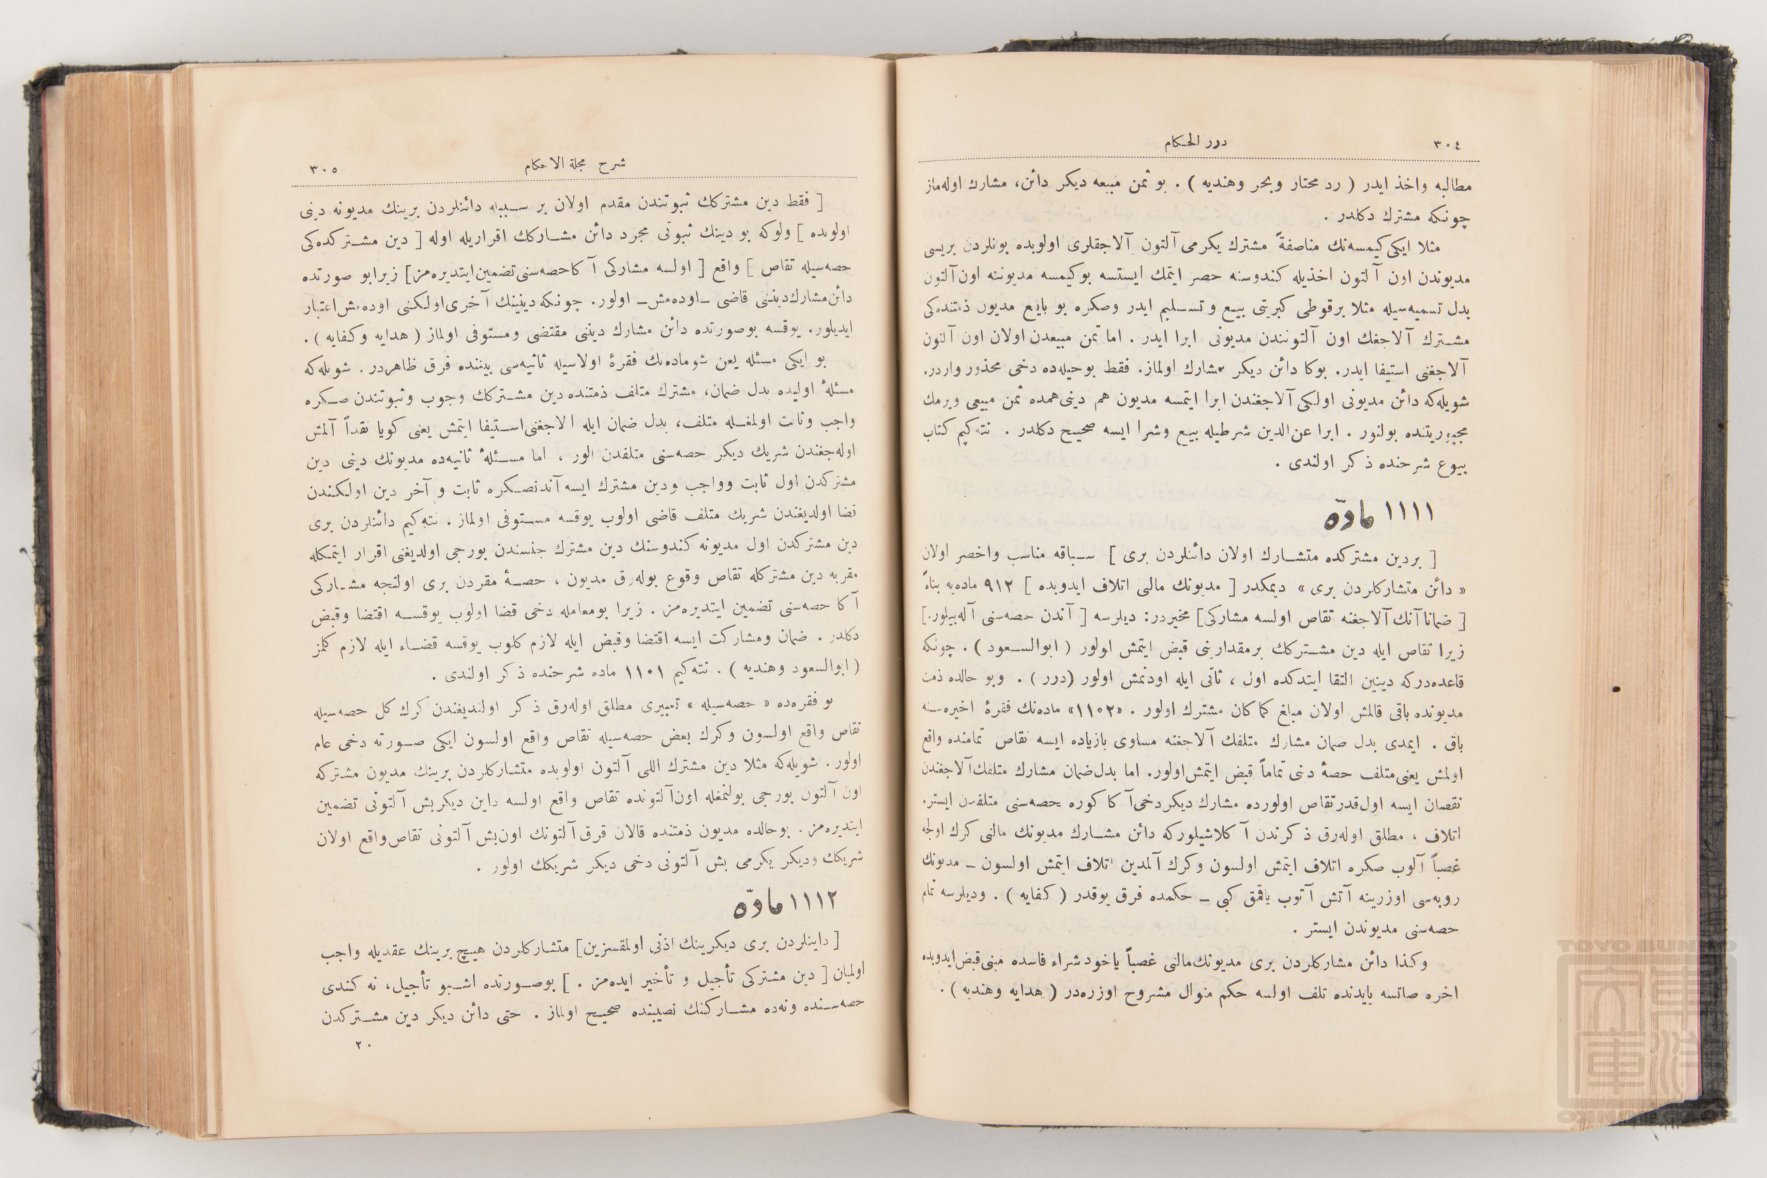 ٣٠٤
درر الحكام
مطالبه واخذ ايدر ( رد محتار وبحر وهنديه ) . بو ثمن مبيعه ديكر دائن، مشارك اوله‌ماز
چونكه مشترك دكلدر .
مثلا ايكى كيمسه‌نك مناصفةً مشترك يكرمى آلتون آلاجقلرى اولوبده بونلردن بريسى
مديوندن اون آلتون اخذيله كندوسنه حصر ايتمك ايستسه بوكيمسه مديوننه اون آلتون
بدل تسميه‌سيله مثلا برقوطى كبريتى بيع وتسليم ايدر وصكره بو بايع مديون ذمتنده‌كى
مشترك آلاجغك اون آلتونندن مديونى ابرا ايدر . اما ثمن مبيعدن اولان اون آلتون
آلاجغنى استيفا ايدر. بوكا دائن ديكر مشارك اولماز. فقط بوحيله‌ده دخى محذور واردر.
شويله‌كه دائن مديونى اولكى آلاجغندن ابرا ايتمسه مديون هم دينى همده ثمن مبيعى ويرمك
مجبوريتنده بولنور . ابرا عن‌الدين شرطيله بيع وشرا ايسه صحيح دكلدر . نته‌كيم كتاب
بيوع شرحنده ذكر اولندى .
١١١١ مادّه
[ بردين مشتركده متشارك اولان دائنلردن برى ] سباقه مناسب واخصر اولان
« دائن متشاركلردن برى » ديمكدر [ مديونك مالى اتلاف ايدوبده ] ٩١٢ ماده‌يه بناءً
[ ضمانا آنك آلاجغنه تقاص اولسه مشاركى] مخيردر: ديلرسه [ آندن حصه‌سنى آله‌بيلور.]
زيرا تقاص ايله دين مشتركك برمقدارينى قبض ايتمش اولور ( ابوالسعود ) . چونكه
قاعده‌دركه دينين التقا ايتدكده اول ، ثانى ايله اودنمش اولور (درر) . وبو حالده ذمت
مديونده باقى قالمش اولان مبلغ كماكان مشترك اولور . «١١٠٢» ماده‌نك فقرۀ اخيره‌سنه
باق . ايمدى بدل ضمان مشارك متلفك آلاجغنه مساوى يازياده ايسه تقاص تمامنده واقع
اولمش يعنى متلف حصۀ دنى تماماً قبض ايتمش اولور. اما بدل‌ضمان مشارك متلفك آلاجغندن
نقصان ايسه اول‌قدر تقاص اولورده مشارك ديكر دخى آكا كوره حصه‌سنى متلفدن ايستر.
اتلاف ، مطلق اوله‌رق ذكرندن آكلاشيلوركه دائن مشارك مديونك مالنى كرك اولجه
غصباً آلوب صكره اتلاف ايتمش اولسون وكرك آلمدين اتلاف ايتمش اولسون ــ مديونك
روبه‌سى اوزرينه آتش آتوب ياقمق كبى ــ حكمده فرق يوقدر ( كفايه ) . وديلرسه تمام
حصه‌سنى مديوندن ايستر .
وكذا دائن مشاركلردن برى مديونك‌مالنى غصباً ياخود شراء فاسده مبنى قبض ايدوبده
اخره صاتسه يايدنده تلف اولسه حكم منوال مشروح اوزره‌در ( هدايه وهنديه ) .
شرح مجلة الاحكام
٣٠٥
[ فقط دين مشتركك ثبوتندن مقدم اولان بر سببله دائنلردن برينك مديونه دينى
اولوبده ] ولوكه بو دينك ثبوتى مجرد دائن مشاركك اقراريله اوله [ دين مشتركده‌كى
حصه‌سيله تقاص ] واقع [ اولسه مشاركى آكا حصه‌سنى تضمين ايتديره‌مز] زيرا بو صورتده
دائن مشارك دينى قاضى ــ اوده‌مش ــ اولور. چونكه دينينك آخرى اولكنى اوده‌مش اعتبار
ايديلور. يوقسه بوصورتده دائن مشارك دينى مقتضى ومستوفى اولماز ( هدايه وكفايه ) .
بو ايكى مسئله يعنى شوماده‌نك فقرۀ اولاسيله ثانيه‌سى بيننده فرق ظاهردر . شويله‌كه
مسئلۀ اوليده بدل ضمان، مشترك متلف ذمتنده دين مشتركك وجوب وثبوتندن صكره
واجب وثابت اولمغله متلف، بدل ضمان ايله آلاجغنى استيفا ايتمش يعنى كويا نقداً آلمش
اوله‌جغندن شريك ديكر حصه‌سنى متلفدن الور ، اما مسئلۀ ثانيه‌ده مديونك دينى دين
مشتركدن اول ثابت وواجب ودين مشترك ايسه آندنصكره ثابت و آخر دين اولكندن
قضا اولديغندن شريك متلف قاضى اولوب يوقسه مستوفى اولماز . نته‌كيم دائنلردن برى
دين مشتركدن اول مديونه كندوسنك دين مشترك جنسندن بورجى اولديغنى اقرار ايتمكله
مقربه دين مشتركله تقاص وقوع بوله‌رق مديون ، حصۀ مقردن برى اولنجه مشاركى
آكا حصه‌سنى تضمين ايتديره‌مز . زيرا بومعامله دخى قضا اولوب يوقسه اقتضا وقبض
دكلدر . ضمان ومشاركت ايسه اقتضا وقبض ايله لازم كلوب يوقسه قضاء ايله لازم كلمز
( ابوالسعود وهنديه ) . نته‌كيم ١١٠١ ماده شرحنده ذكر اولندى .
بو فقره‌ده « حصه‌سيله » تعبيرى مطلق اوله‌رق ذكر اولنديغندن كرك كل حصه‌سيله
تقاص واقع اولسون وكرك بعض حصه‌سيله تقاص واقع اولسون ايكى صورته دخى عام
اولور . شويله‌كه مثلا دين مشترك اللى آلتون اولوبده متشاركلردن برينك مديون مشتركه
اون آلتون بورجى بولنمغله اون آلتونده تقاص واقع اولسه داين ديكر بش آلتونى تضمين
ايتديره‌مز . بوحالده مديون ذمتنده قالان قرق آلتونك اون‌بش آلتونى تقاص واقع اولان
شريكك وديكر يكرمى بش آلتونى دخى ديكر شريكك اولور .
١١١٢ مادّه
[ داينلردن برى ديكرينك اذنى اولمقسزين] متشاركلردن هيچ برينك عقديله واجب
اولميان [ دين مشتركى تأجيل و تأخير ايده‌مز . ] بوصورتده اشبو تأجيل، نه كندى
حصه‌سنده ونه‌ده مشاركنك نصيبنده صحيح اولماز . حتى دائن ديكر دين مشتركدن
٢٠
TOYO BUNKO